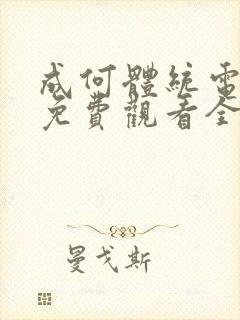 成何體統電
免費觀看全
曼戈斯